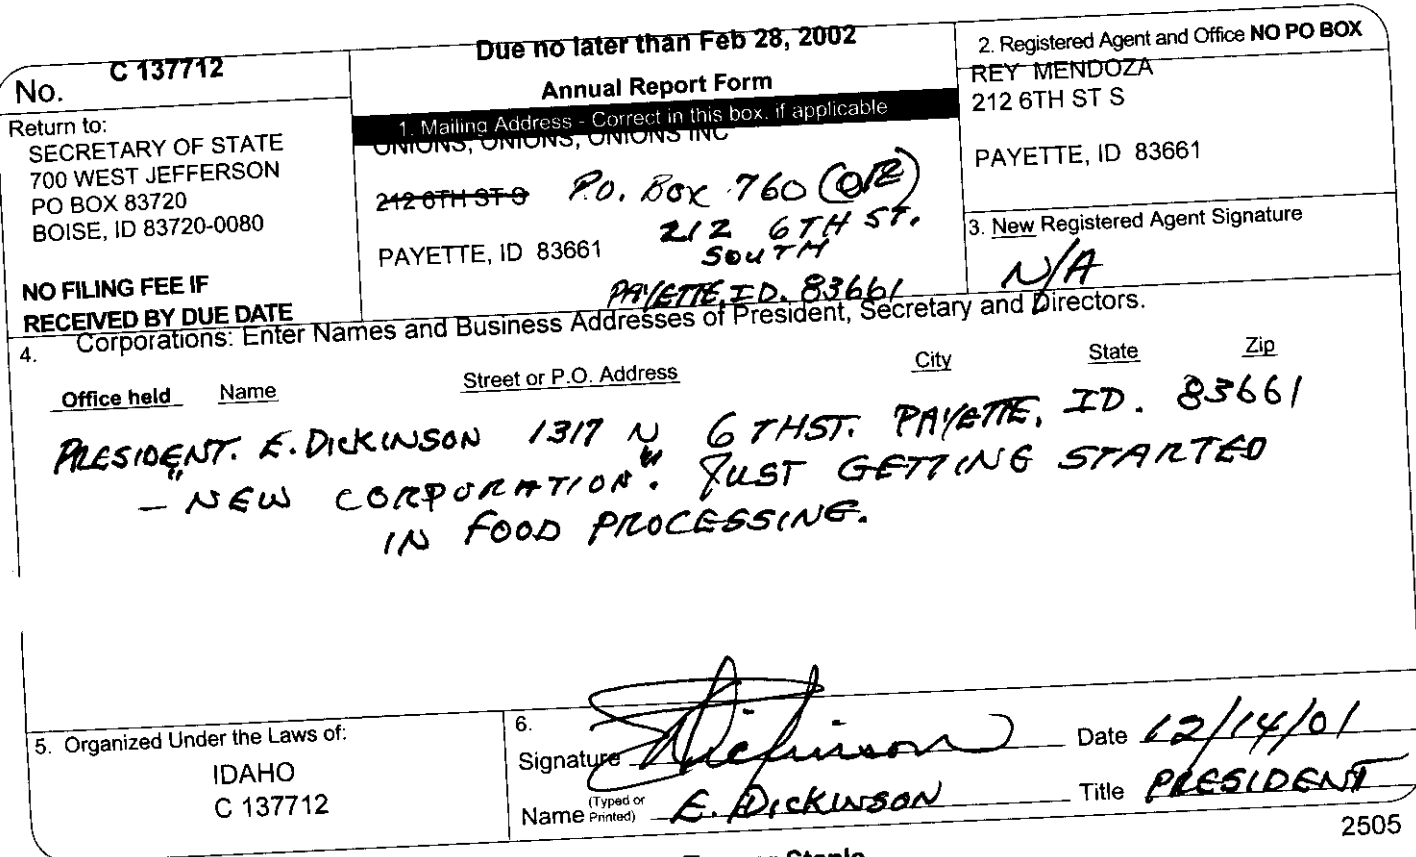 No. C 137712
Return to:
SECRETARY OF STATE
700 WEST JEFFERSON
PO BOX 83720
BOISE, ID 83720-0080
NO FILING FEE IF
RECEIVED BY DUE DATE
Due no later than Feb 28, 2002
Annual Report Form
1. Mailing Address - Correct in this box, if applicable
ONIONS, ONIONS, ONIONS INC
212 6TH ST S P.O. BOX 760 (OR)
212 6TH ST.
SOUTH
PAYETTE, ID 83661
PAYETTE, ID. 83661
2. Registered Agent and Office NO PO BOX
REY MENDOZA
212 6TH ST S
PAYETTE, ID 83661
3. New Registered Agent Signature
N/A
4. Corporations: Enter Names and Business Addresses of President, Secretary and Directors.
Office held Name Street or P.O. Address City State Zip
PRESIDENT. E. DICKINSON 1317 N 6 THST. PAYETTE, ID. 83661
- "NEW CORPORATION". JUST GETTING STARTED
IN FOOD PROCESSING.
5. Organized Under the Laws of:
IDAHO
C 137712
6.
Signature E Dickinson Date 12/14/01
Name (Typed or Printed) E. DICKINSON Title PRESIDENT
2505